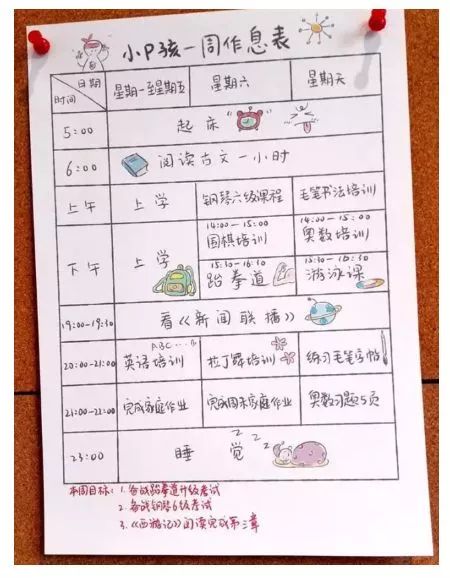 小P孩一周作息表
日期
时间
星期一至星期五 星期六 星期天
5:00 起床
6:00 阅读古文一小时
上午 上学 钢琴六级课程 毛笔书法培训
下午 上学 14:00-15:00 围棋培训 14:00-15:00 奥数培训
15:30-16:30 跆拳道 15:30-16:30 游泳课
19:00-19:30 看《新闻联播》
ABC...
20:00-21:00 英语培训 拉丁舞培训 练习毛笔字帖
21:00-22:00 完成家庭作业 完成周末家庭作业 奥数习题5页
23:00 睡觉 zzz
本周目标: 1. 备战跆拳道升级考试
2. 备战钢琴6级考试
3.《西游记》阅读完成第三章